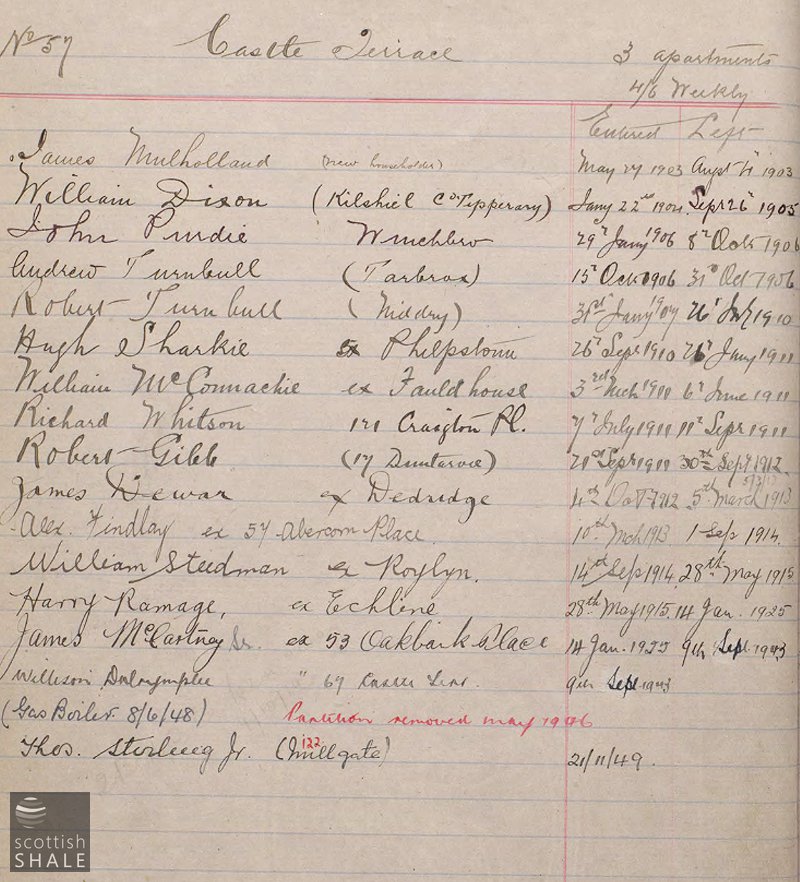 No 57 Castle Terrace 3 apartments
4/6 Weekly
Entered Left
James Mulholland (new householder) May 27 1903 Augst 4th 1903
William Dixon (Kilshiel Co. Tipperary) Jany 22nd 1904 Sepr 26th 1905
John Purdie Winchbro 29th Jany 1906 8th Octr 1906
Andrew Turnbull (Tarbrax) 15th Oct 1906 31st Oct 1906
Robert Turnbull (Niddry) 31st Jany 1907 26th July 1910
Hugh Sharkie ex Philpstoun 26th Sepr 1910 26th Jany 1911
William McConnachie ex Fauldhouse 3rd Mch 1911 6th June 1911
Richard Whitson 171 Craigton Pl. 7th July 1911 11th Sepr 1911
Robert Gibb (17 Duntarvie) 21st Sepr 1911 30th Sept 1912
James Dewar ex Dedridge 4th Oct 1912 5th March 1913
Alex. Findlay ex 57 Abercorn Place. 10th Mch 1913 1 Sep 1914.
William Steedman ex Roylyn. 14th Sep 1914 28th May 1915
Harry Ramage, ex Echline 28th May 1915 14 Jan. 1925
James McCartney Sr. ex 53 Oakbank Place 14 Jan. 1925 9th Sept 1943
Willison Dalrymple " 67 Castle Terr. 9th Sept 1943
(Gas Boiler 8/6/48) Partition removed May 1946
Thos. Stirling Jr. (122 Millgate) 21/11/49.
scottish
SHALE